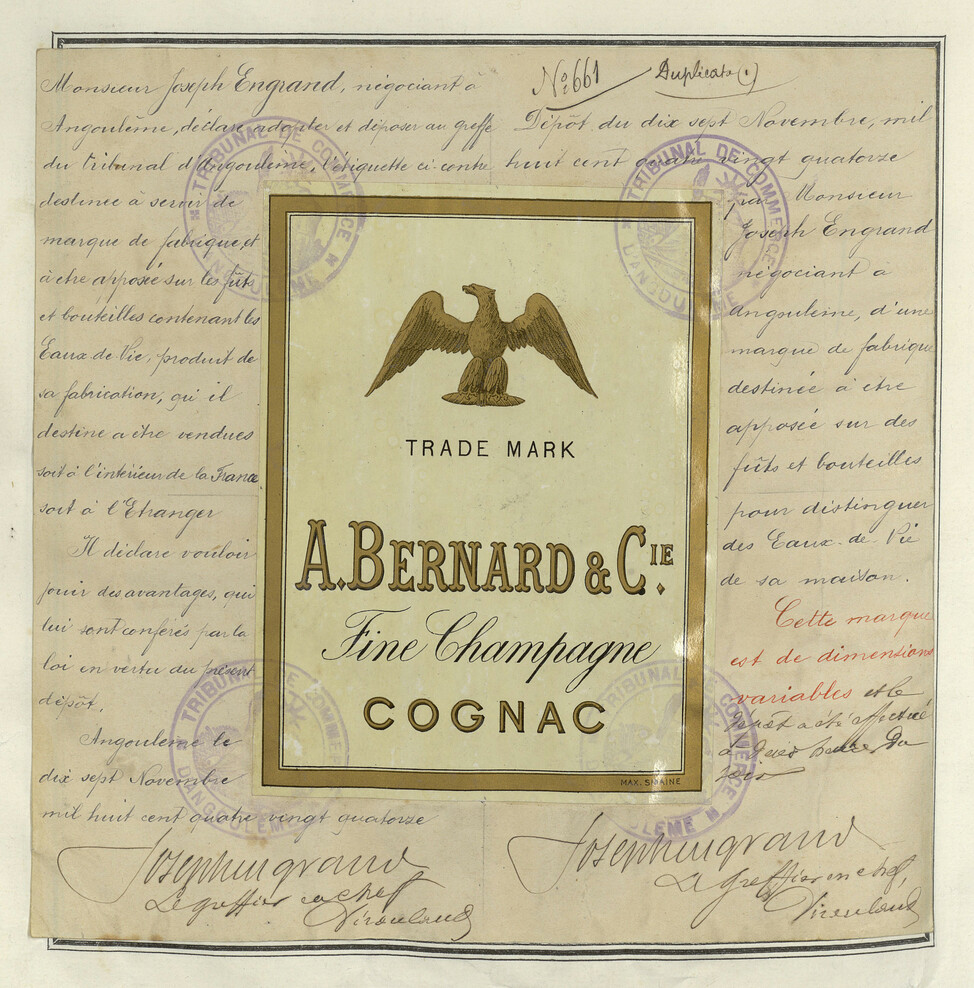 Monsieur Joseph Engrand, négociant à
Angoulême, déclare adopter et déposer au greffe
du tribunal d'Angoulême, l'étiquette ci-contre
destinée à servir de
marque de fabrique, et
à être apposée sur les fûts
et bouteilles contenant les
Eaux de Vie, produit de
sa fabrication, qu'il
destine a être vendues
soit à l'intérieur de la France
soit à l'Etranger
Il déclare vouloir
jouir des avantages, qui
lui sont conférés par la
loi en vertu du présent
dépôt.
Angoulême le
dix sept Novembre
mil huit cent quatre vingt quatorze
Joseph Engrand
Le greffier en chef
No 661 Duplicata (.)
Dépôt du dix sept Novembre, mil
huit cent quatre vingt quatorze
par Monsieur
Joseph Engrand
négociant à
Angoulême, d'une
marque de fabrique
destinée à être
apposée sur des
fûts et bouteilles
pour distinguer
des Eaux-de-Vie
de sa maison.
Cette marque
est de dimensions
variables et le
dépôt a été effectué
à heures du
soir
Joseph Engrand
Le Greffier en chef,
TRADE MARK
A. BERNARD & CIE.
Fine Champagne
COGNAC
MAX. SMAINE
TRIBUNAL DE COMMERCE
D'ANGOULÊME
TRIBUNAL DE COMMERCE
D'ANGOULÊME
TRIBUNAL DE COMMERCE
D'ANGOULÊME
TRIBUNAL DE COMMERCE
D'ANGOULÊME